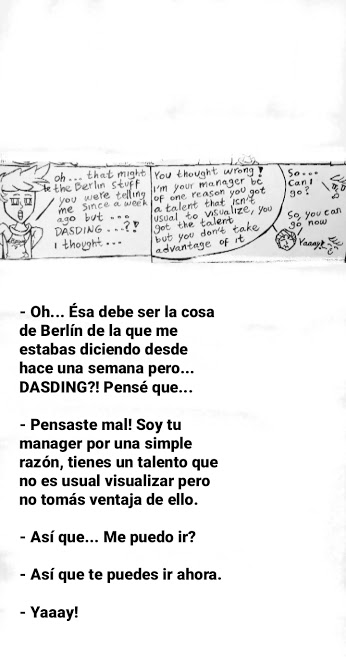 oh... that might
be the Berlin stuff
you were telling
me since a week
ago but ...
DASDING...?!
I thought...
You thought wrong!
I'm your manager bc
of one reason you got
a talent that isn't
usual to visualize, you
got the talent,
but you don't take
advantage of it
So...
Can I
go?
So, you can
go now
Yaaay!
- Oh... Ésa debe ser la cosa
de Berlín de la que me
estabas diciendo desde
hace una semana pero...
DASDING?! Pensé que...
- Pensaste mal! Soy tu
manager por una simple
razón, tienes un talento que
no es usual visualizar pero
no tomás ventaja de ello.
- Así que... Me puedo ir?
- Así que te puedes ir ahora.
- Yaaay!